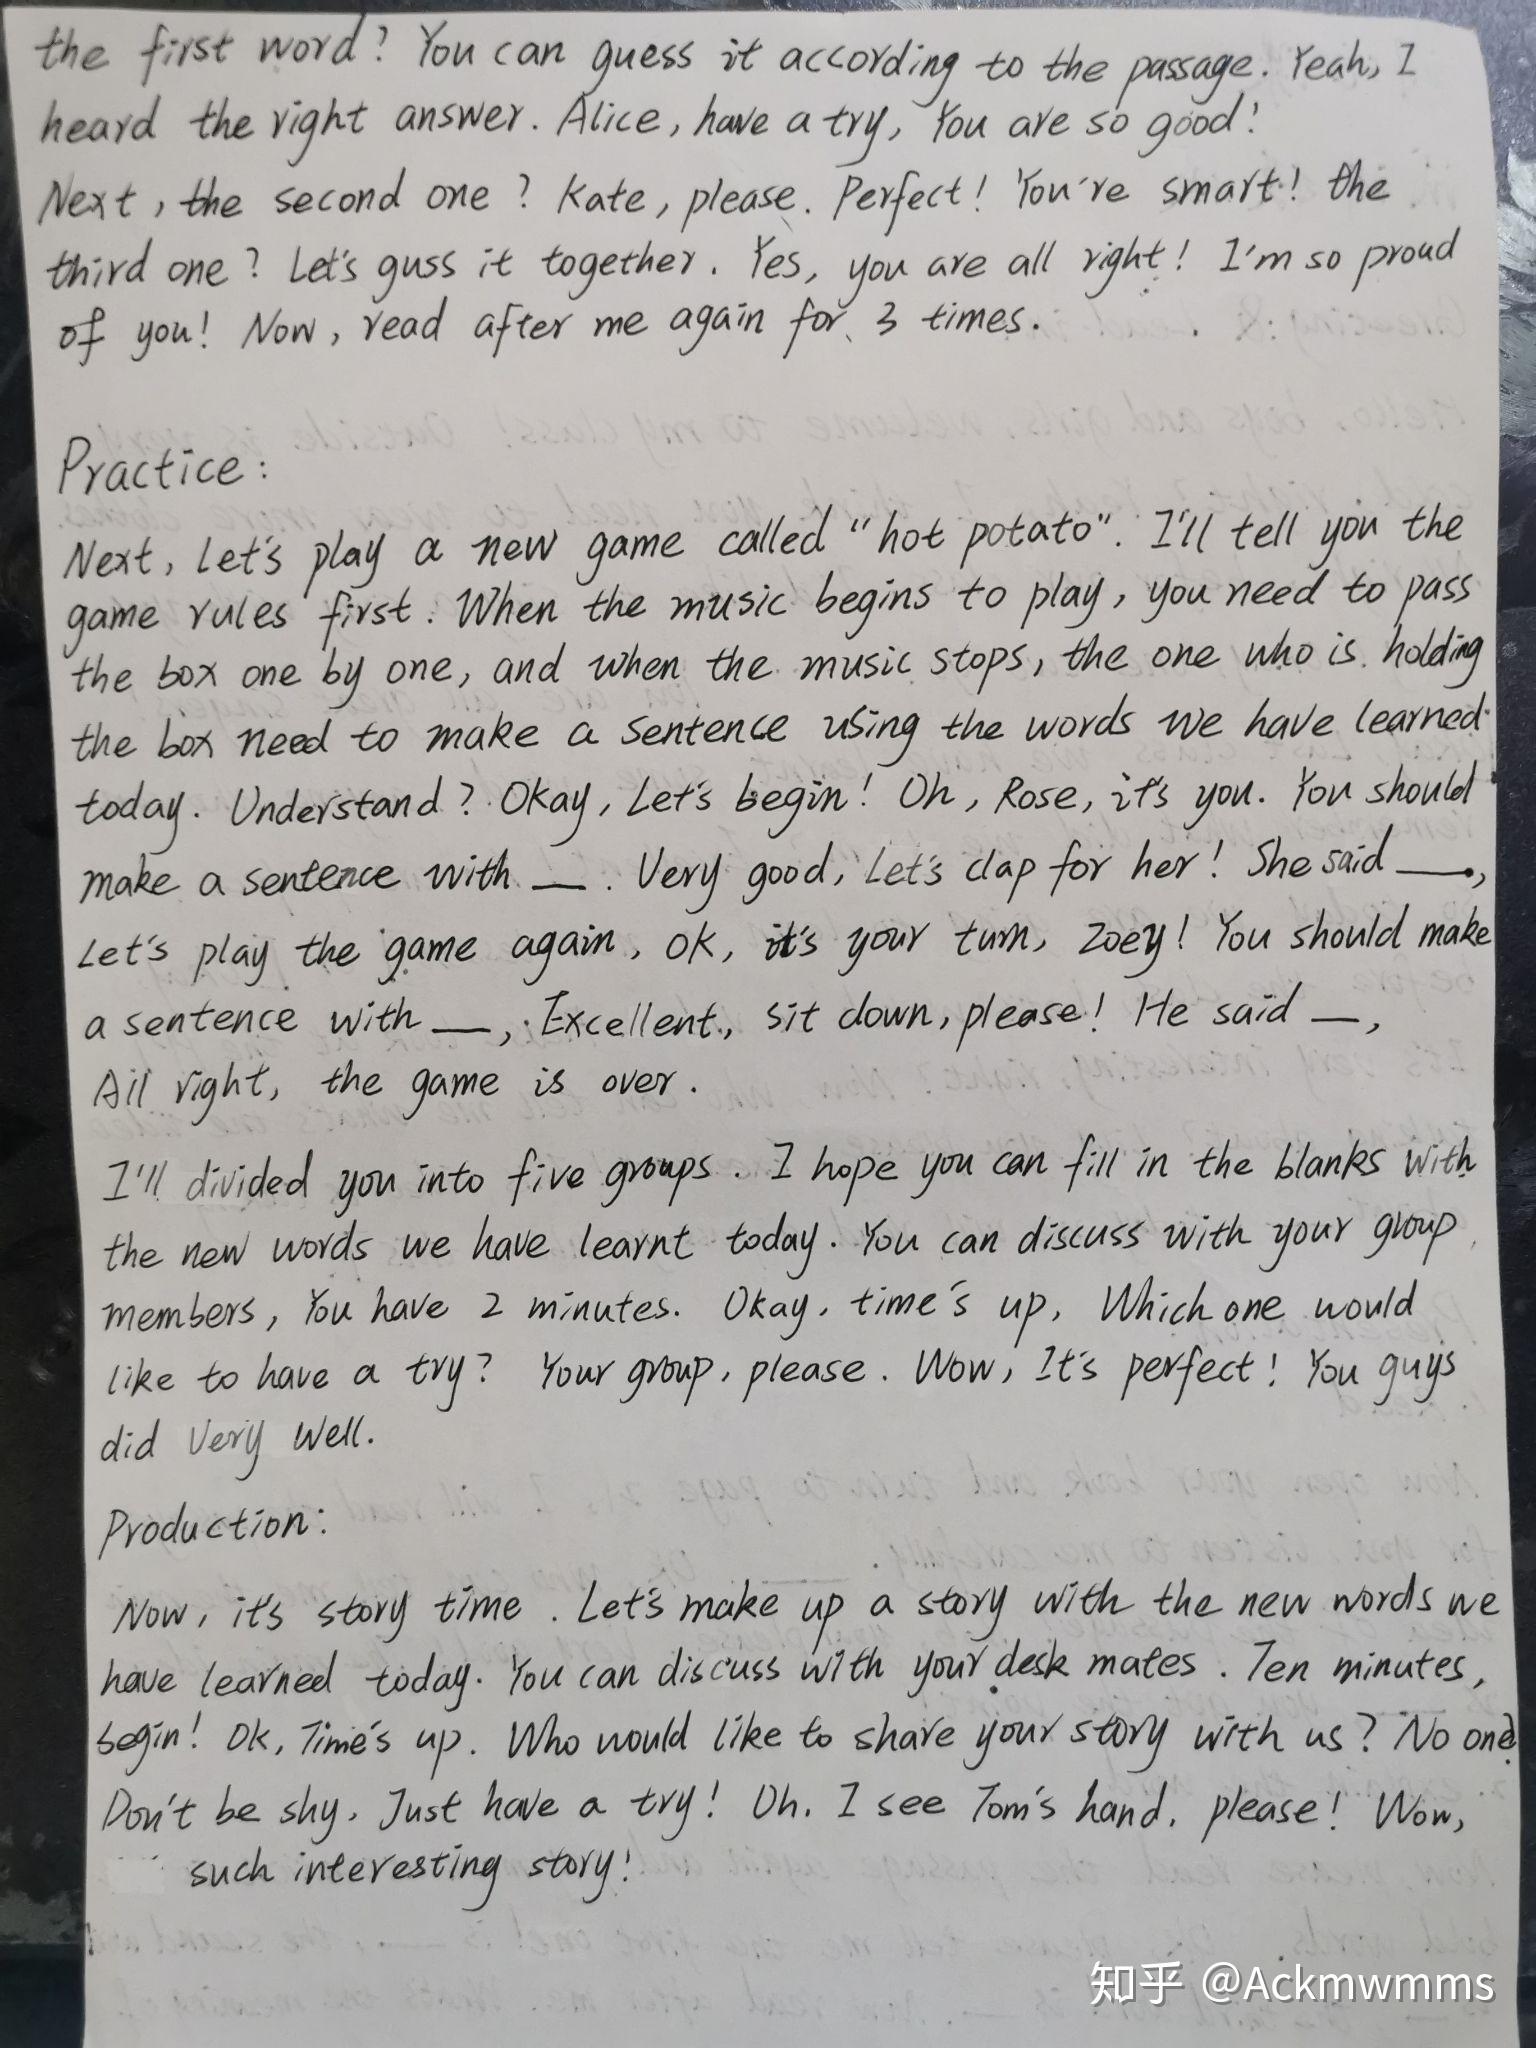 the first word? You can guess it according to the passage. Yeah, I
heard the right answer. Alice, have a try, You are so good!
Next, the second one? Kate, please. Perfect! You're smart! the
third one? Let's guss it together. Yes, you are all right! I'm so proud
of you! Now, read after me again for 3 times.
Practice:
Next, Let's play a new game called "hot potato". I'll tell you the
game rules first. When the music begins to play, you need to pass
the box one by one, and when the music stops, the one who is holding
the box need to make a sentence using the words we have learned
today. Understand? Okay, Let's begin! Oh, Rose, it's you. You should
make a sentence with __. Very good, Let's clap for her! She said __,
Let's play the game again, OK, it's your turn, Zoey! You should make
a sentence with __, Excellent, sit down, please! He said __,
All right, the game is over.
I'll divided you into five groups. I hope you can fill in the blanks with
the new words we have learnt today. You can discuss with your group
members, You have 2 minutes. Okay, time's up, Which one would
like to have a try? Your group, please. Wow, It's perfect! You guys
did Very Well.
Production:
Now, it's story time. Let's make up a story with the new words we
have learned today. You can discuss with your desk mates. Ten minutes,
begin! Ok, Time's up. Who would like to share your story with us? No one?
Don't be shy, Just have a try! Oh, I see Tom's hand, please! Wow,
such interesting story!
知乎 @Ackmwmms